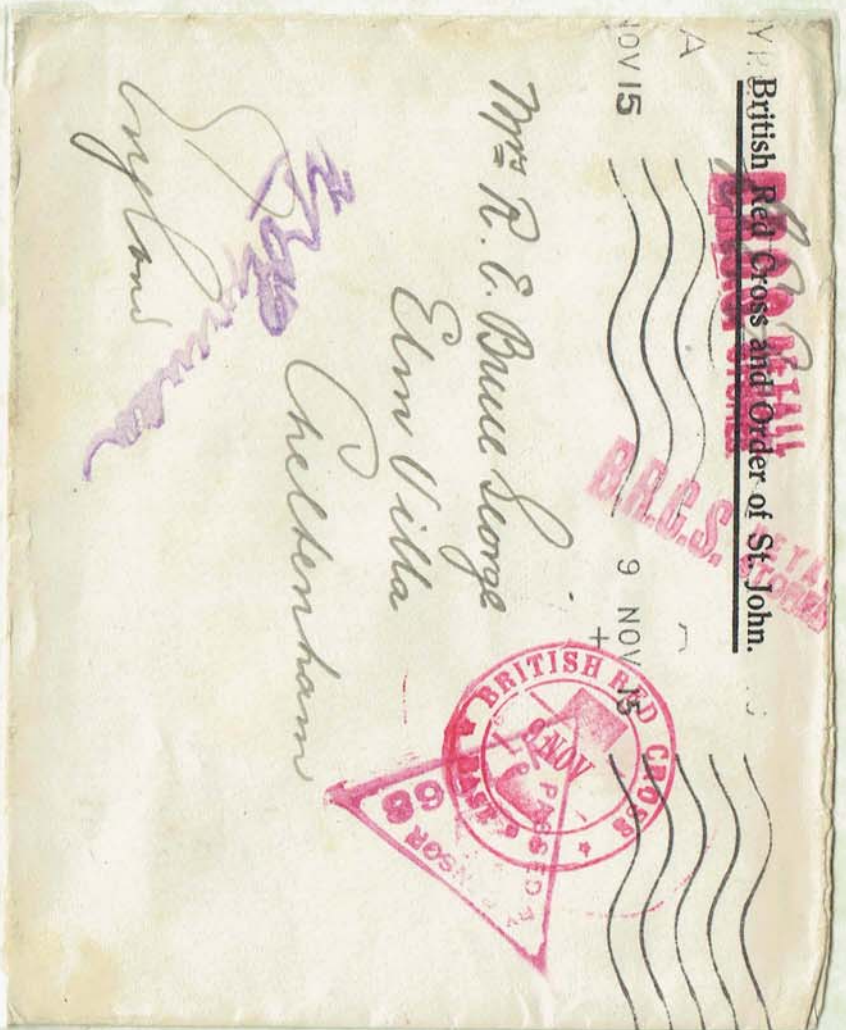 British Red Cross and Order of St. John.
B.R.C.S. RETAIL
STORES
A
NOV 15
9 NOV 15
BRITISH RED CROSS
9 NOV
PASSED BY
CENSOR
68
Mrs R. E. Bruce George
Elm Villa
Cheltenham
England